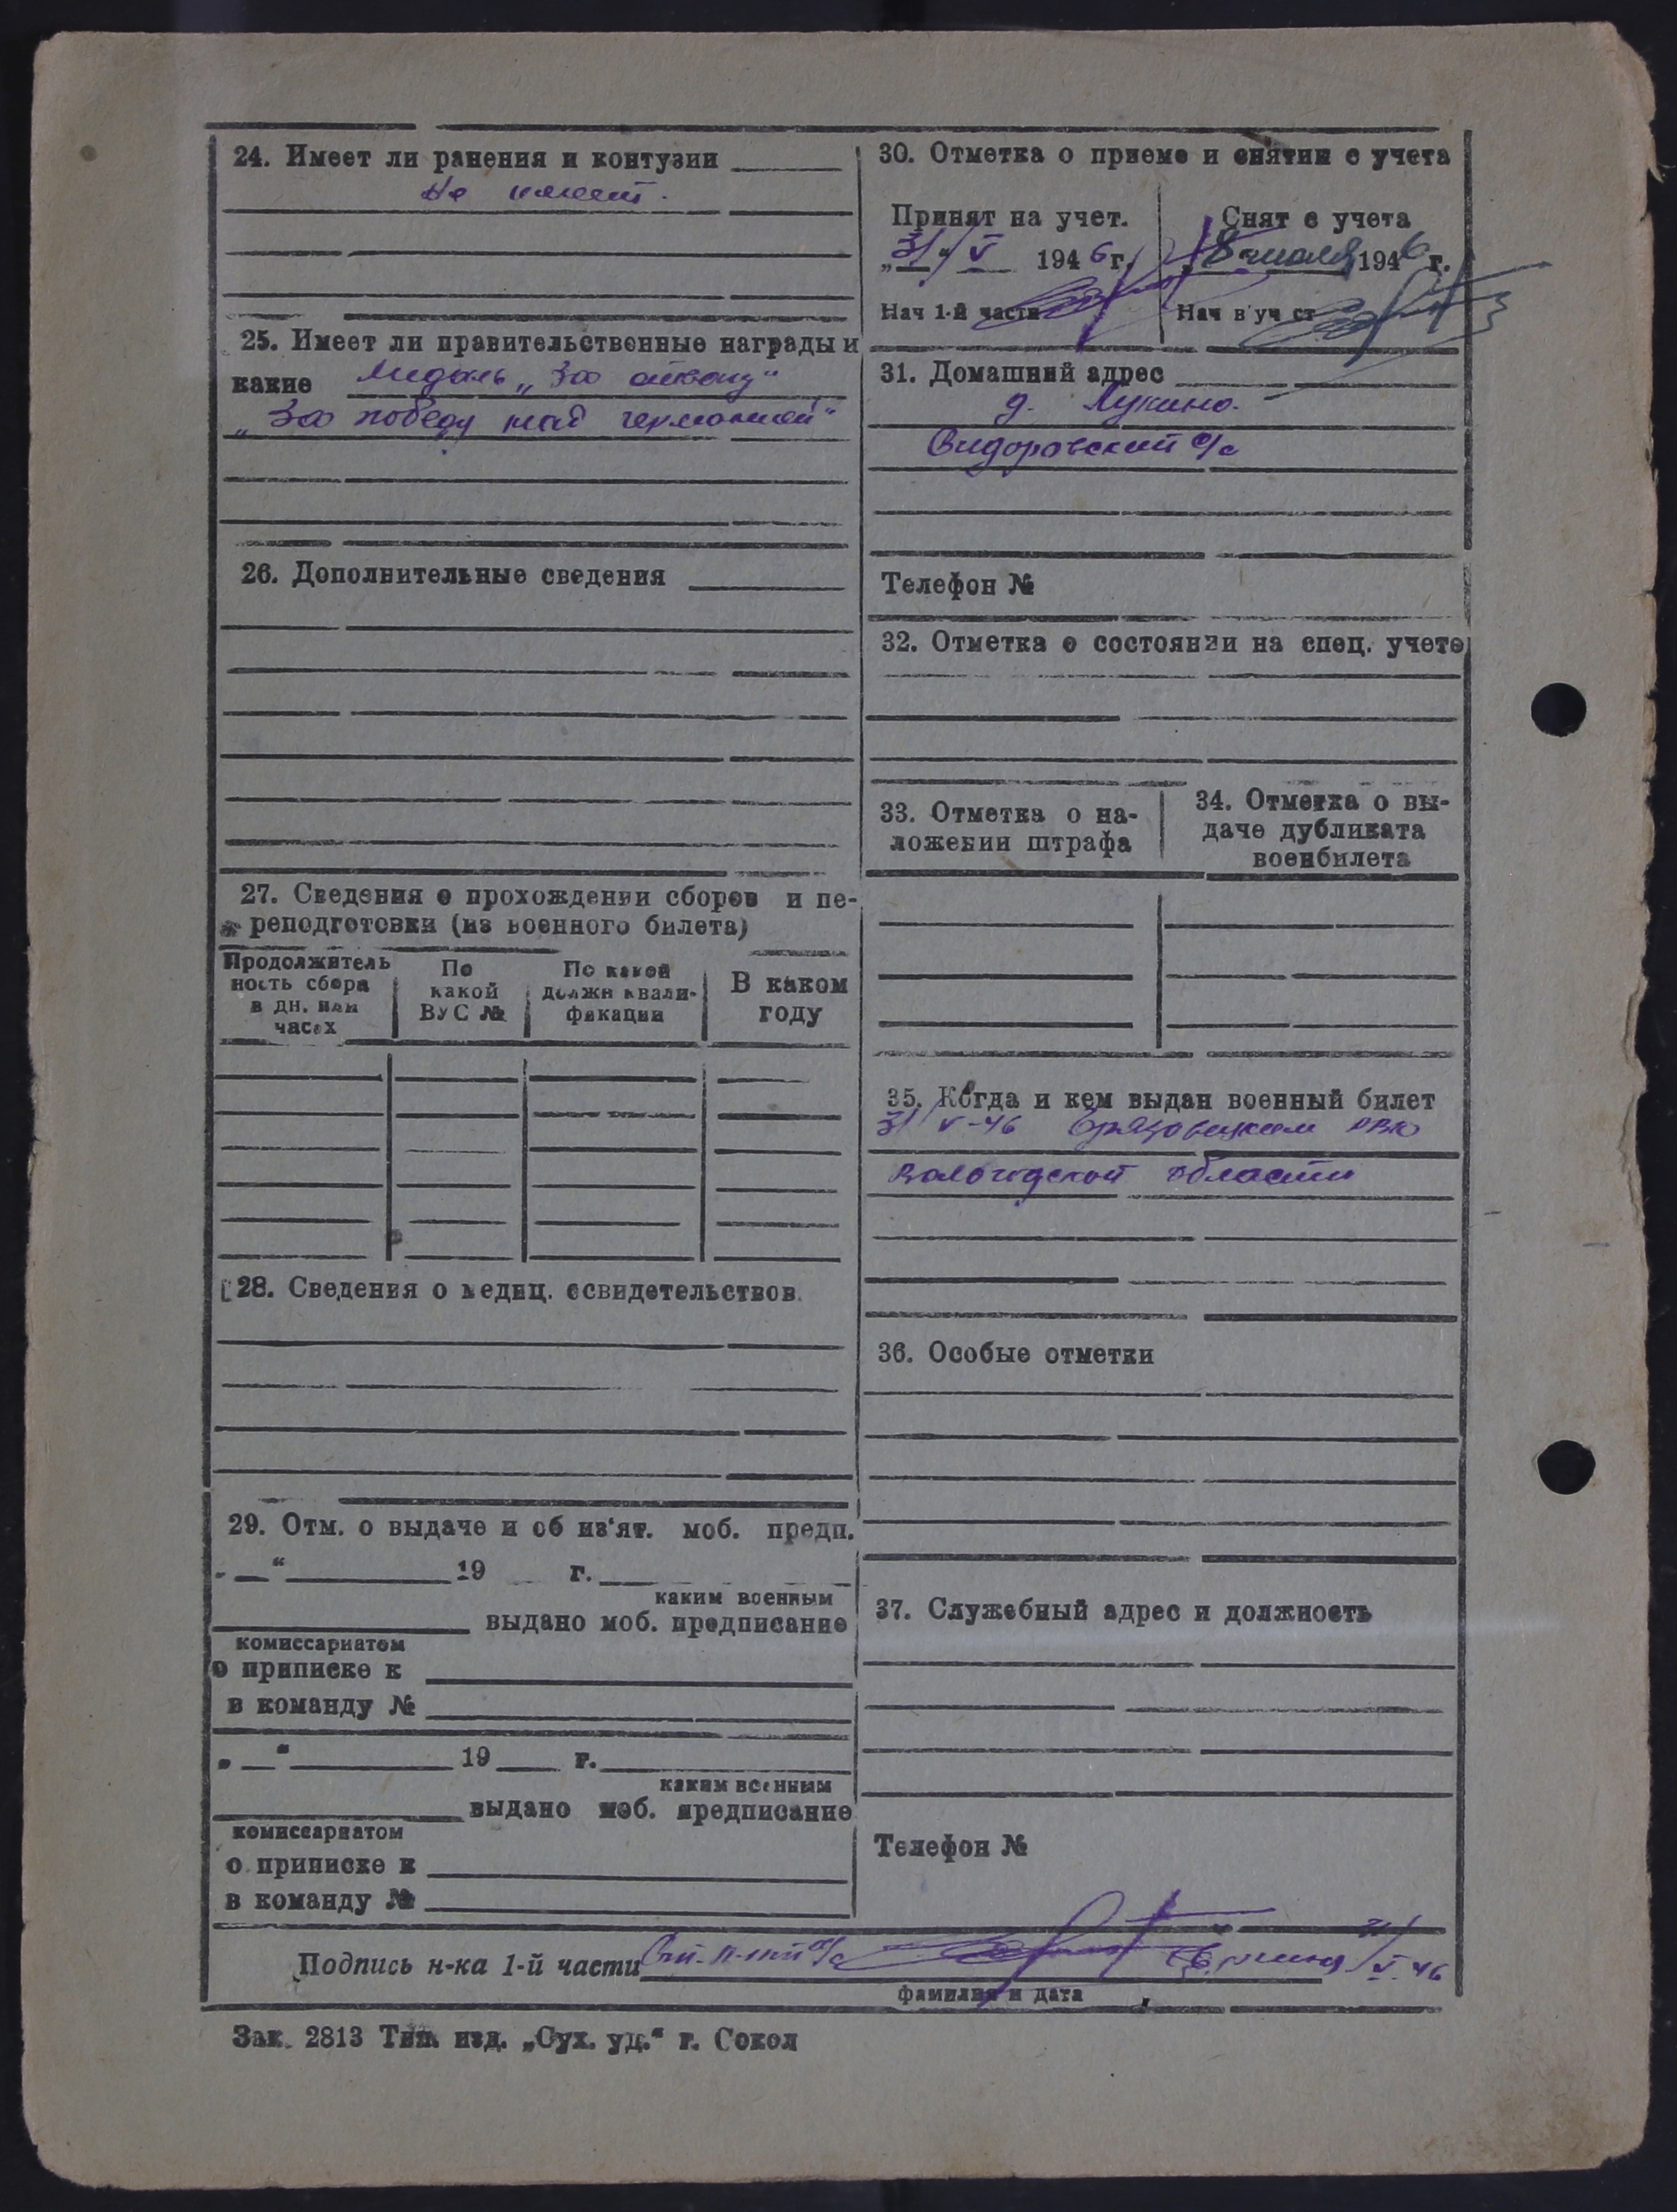 24. Имеет ли ранения и контузии
не имеет.
25. Имеет ли правительственные награды и
какие Медаль „За отвагу"
„За победу над германией"
26. Дополнительные сведения
27. Сведения о прохождении сборов и пе-
реподготовки (из военного билета)
Продолжитель
ность сбора
в дн. или
часах
По
какой
ВУС №
По какой
должн квали-
фикации
В каком
году
28. Сведения о медиц. освидетельствов.
29. Отм. о выдаче и об из'ят. моб. предп.
„ " 19 г.
каким военным
выдано моб. предписание
комиссариатом
о приписке к
в команду №
„ " 19 г.
каким военным
выдано моб. предписание
комиссариатом
о приписке к
в команду №
30. Отметка о приеме и снятии с учета
Принят на учет.
„31" V 1946 г.
Нач 1-й части
Снят с учета
8 июля 1946 г.
Нач в уч ст
31. Домашний адрес
д. Лукино.
Сидоровский с/с
Телефон №
32. Отметка о состоянии на спец. учете
33. Отметка о на-
ложении штрафа
34. Отметка о вы-
даче дубликата
военбилета
35. Когда и кем выдан военный билет
31/V-46 Грязовецким РВК
Вологодской области
36. Особые отметки
37. Служебный адрес и должность
Телефон №
Подпись н-ка 1-й части Ст. л-т а/с 31/V.46
фамилия и дата
Зак. 2813 Тип. изд. „Сух. уд." г. Сокол